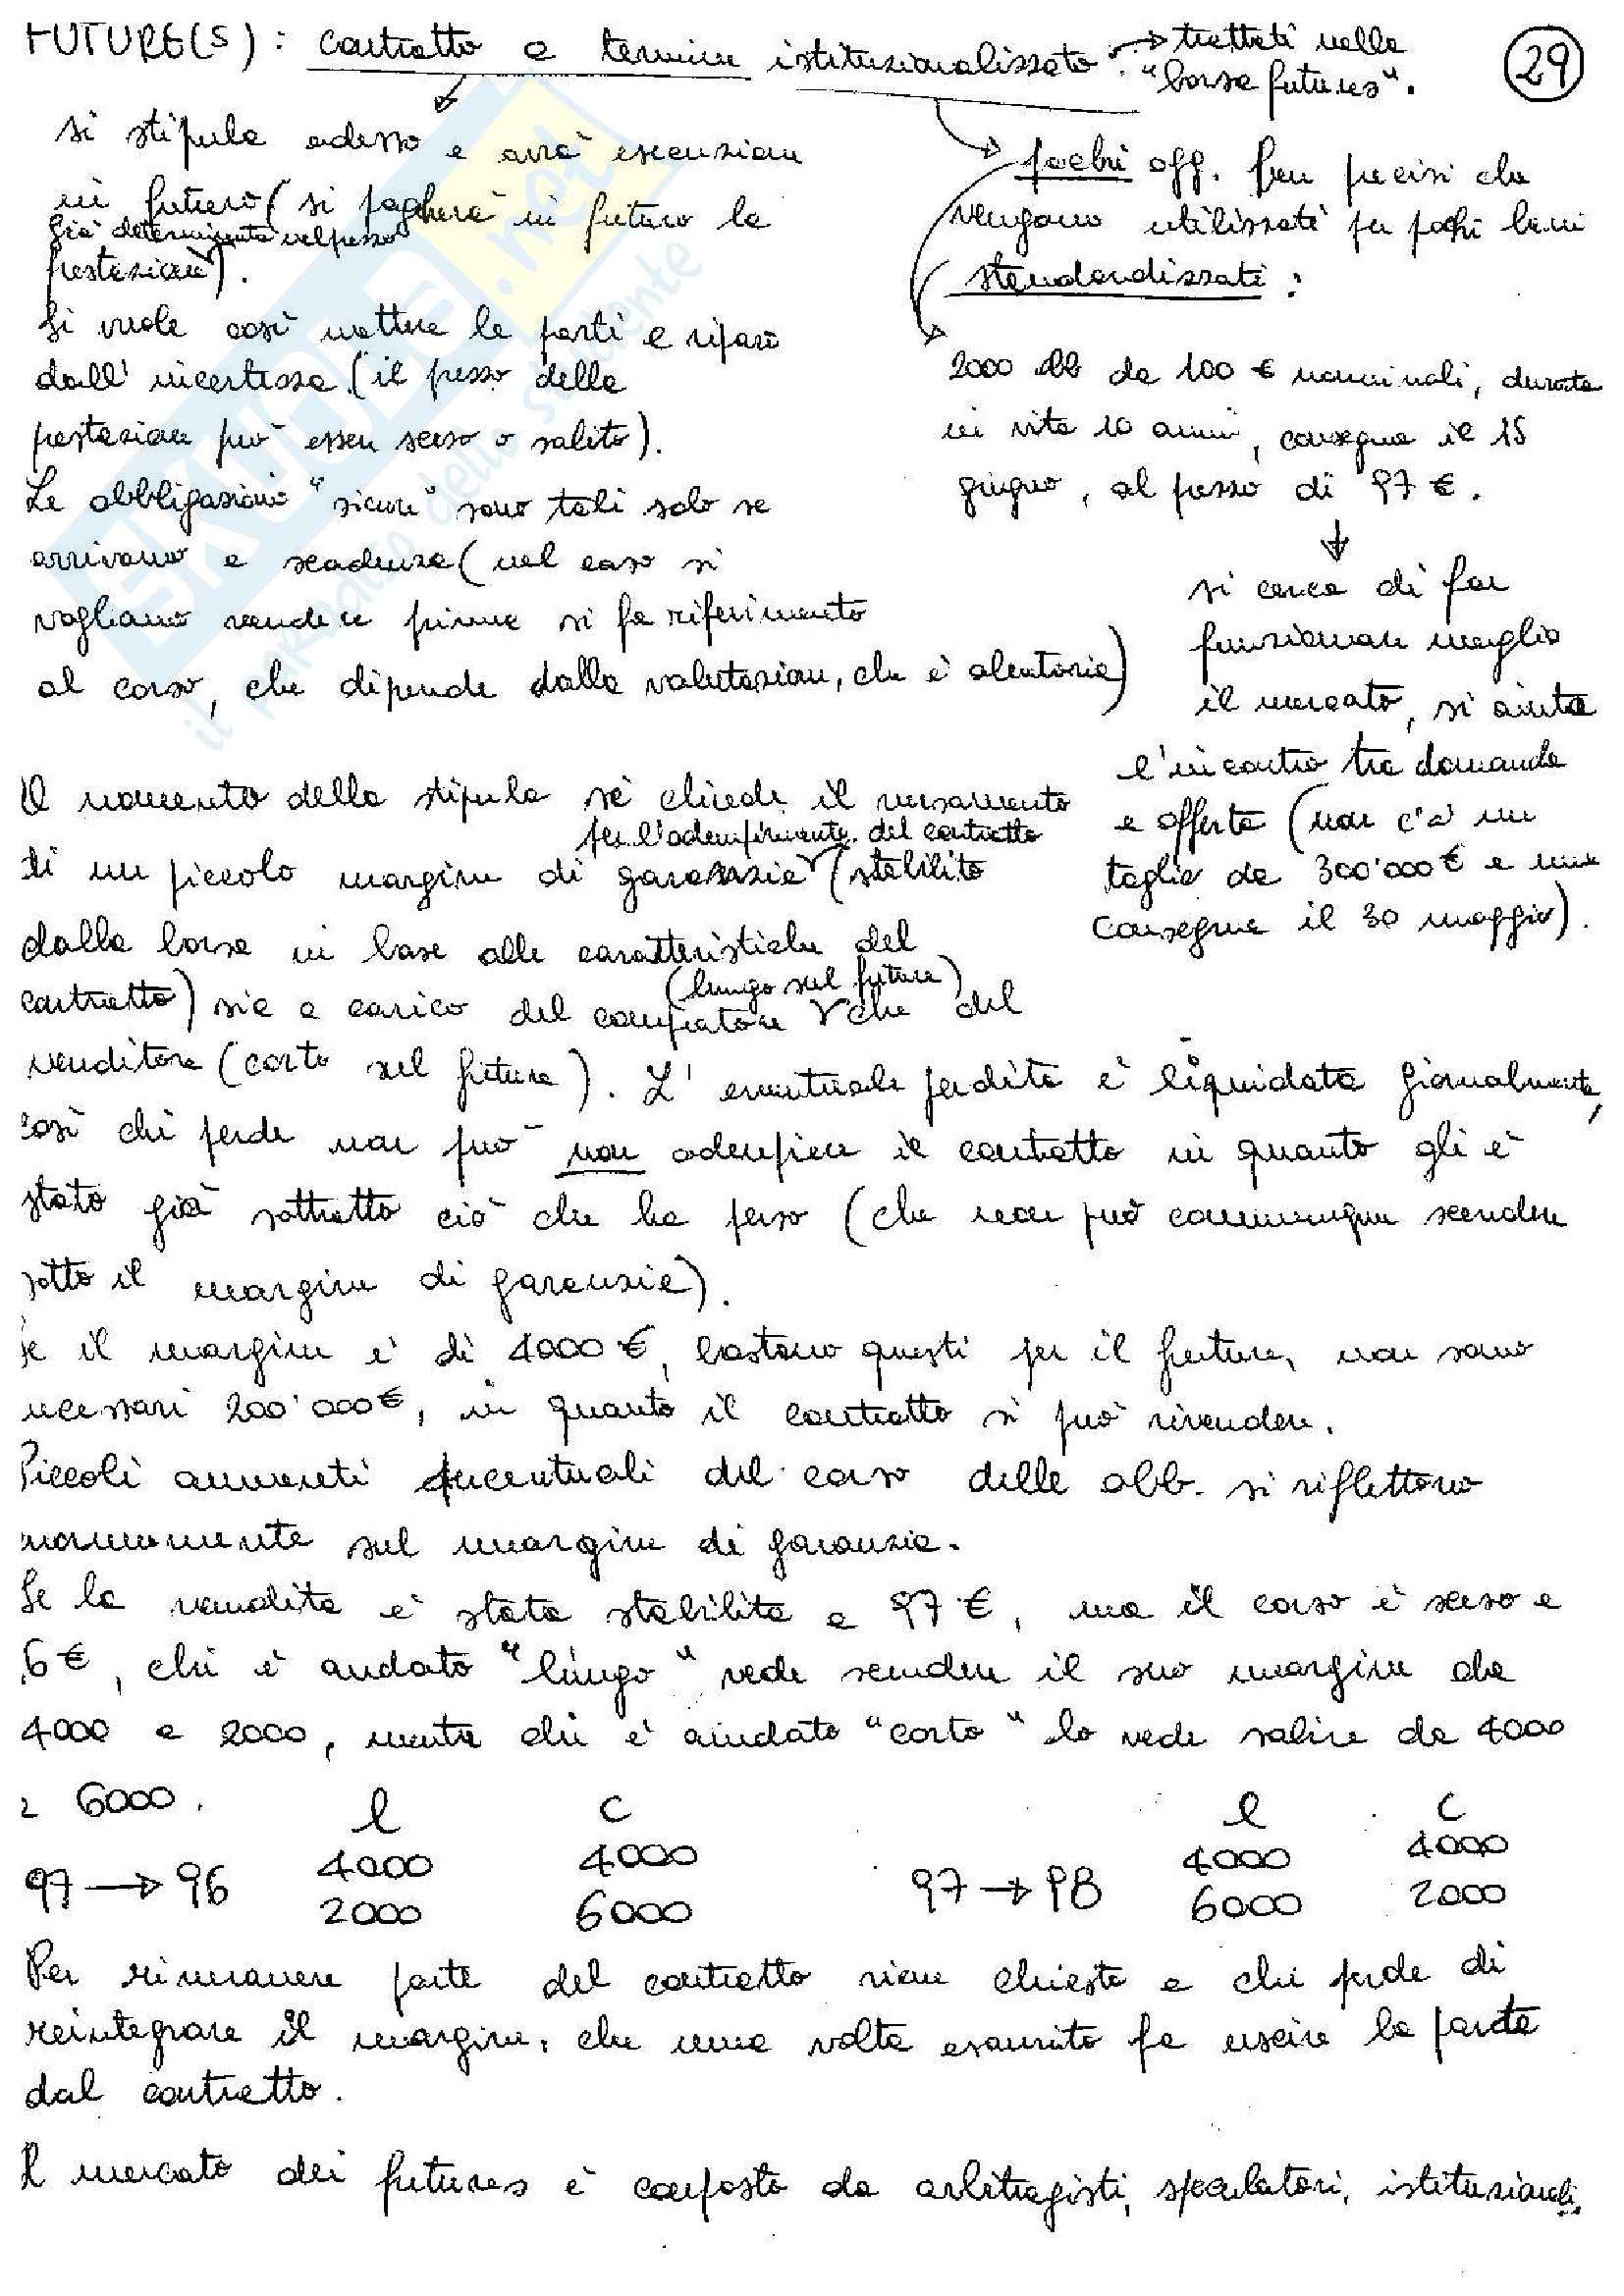 FUTURE(S): contratto a termine istituzionalizzato → trattati nella
"borsa futures".
29
si stipula adesso e avrà esecuzione
in futuro (si pagherà in futuro la
già determinata nel prezzo
prestazione).
Si vuole così mettere le parti a riparo
dall'incertezza (il prezzo della
prestazione può essere sceso o salito).
Le obbligazioni "sicure" sono tali solo se
arrivano a scadenza (nel caso si
vogliano vendere prima si fa riferimento
al corso, che dipende dalla valutazione, che è aleatoria)
pochi ogg. ben precisi che
vengono utilizzati per pochi beni
standardizzati:
2000 obb da 100 € nominali, durata
in vita 10 anni, consegna il 15
giugno, al prezzo di 97 €.
↓
si cerca di far
funzionare meglio
il mercato, si aiuta
l'incontro tra domanda
e offerta (non c'è un
taglio da 300'000 € e una
consegna il 30 maggio).
Al momento della stipula si chiede il versamento
per l'adempimento del contratto
di un piccolo margine di garanzia (stabilito
dalla borsa in base alle caratteristiche del
contratto) sia a carico del compratore che del
(lungo sul future)
venditore (corto sul future). L'eventuale perdita è liquidata giornalmente,
così chi perde non può non adempiere il contratto in quanto gli è
stato già sottratto ciò che ha perso (che non può comunque scendere
sotto il margine di garanzia).
Se il margine è di 4000 €, bastano questi per il future, non sono
necessari 200'000 €, in quanto il contratto si può rivendere.
Piccoli aumenti percentuali del corso delle obb. si riflettono
sul margine di garanzia.
Se la vendita è stata stabilita a 97 €, ma il corso è sceso a
96 €, chi è andato "lungo" vede scendere il suo margine da
4000 a 2000, mentre chi è andato "corto" lo vede salire da 4000
a 6000.
l c l c
4000 4000 4000 4000
97 → 96 97 → 98
2000 6000 6000 2000
Per rimanere parte del contratto viene chiesto a chi perde di
reintegrare il margine, che una volta esaurito fa uscire la parte
dal contratto.
Il mercato dei futures è composto da arbitragisti, speculatori, istituzionali.
SKUOLA.net
il paradiso dello studente